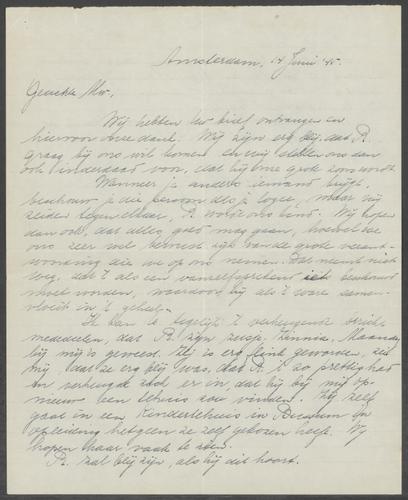 Amsterdam, 14 Juni '45.
Geachte Mw.
Wij hebben Uw brief ontvangen en
hiervoor onze dank. Wij zijn erg blij, dat R.
graag bij ons wil komen en wij stellen ons dan
ook inderdaad voor, dat hij onze grote zoon wordt.
Wanneer je anders iemand krijgt,
beschouw je die persoon als je logee, maar wij
zeiden tegen elkaar, R. wordt ons kind. Wij hopen
dan ook, dat alles goed mag gaan, hoewel we
ons zeer wel bewust zijn van de grote verant-
woording die we op ons nemen. Dat neemt niet
weg, dat 't als een vanzelfsprekend iets beschouwd
moet worden, waardoor hij als 't ware samen-
vloeit in 't geheel.
Ik kan U tegelijk 't verheugende bericht
mededelen, dat R. zijn zusje, Hannie, Maandag
bij mij is geweest. Zij is erg flink geworden, zei
mij, dat ze erg blij was, dat R. 't zo prettig had
en verheugde zich er in, dat hij bij mij op-
nieuw een tehuis zou vinden. Zij zelf
gaat in een Kindertehuis in Bussum in
opleiding hetgeen ze zelf gekozen heeft. Wij
hopen haar vaak te zien.
R. zal blij zijn, als hij dit hoort.